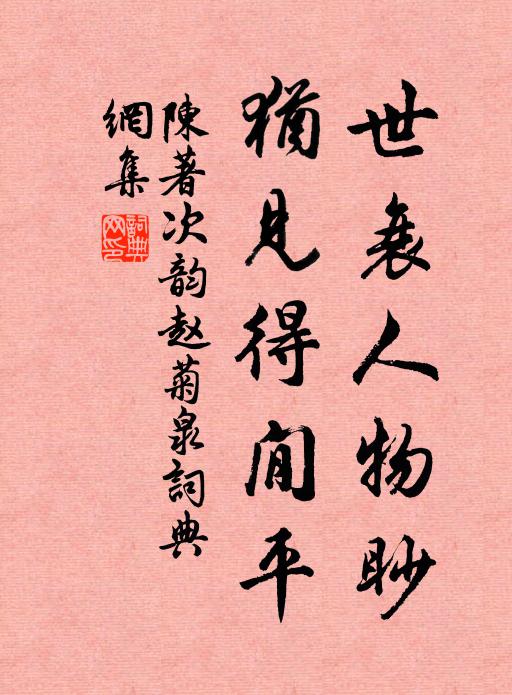 世衰人物眇
犹见得间平
陳著次韵赵菊泉詞典
網集
詞典
网印